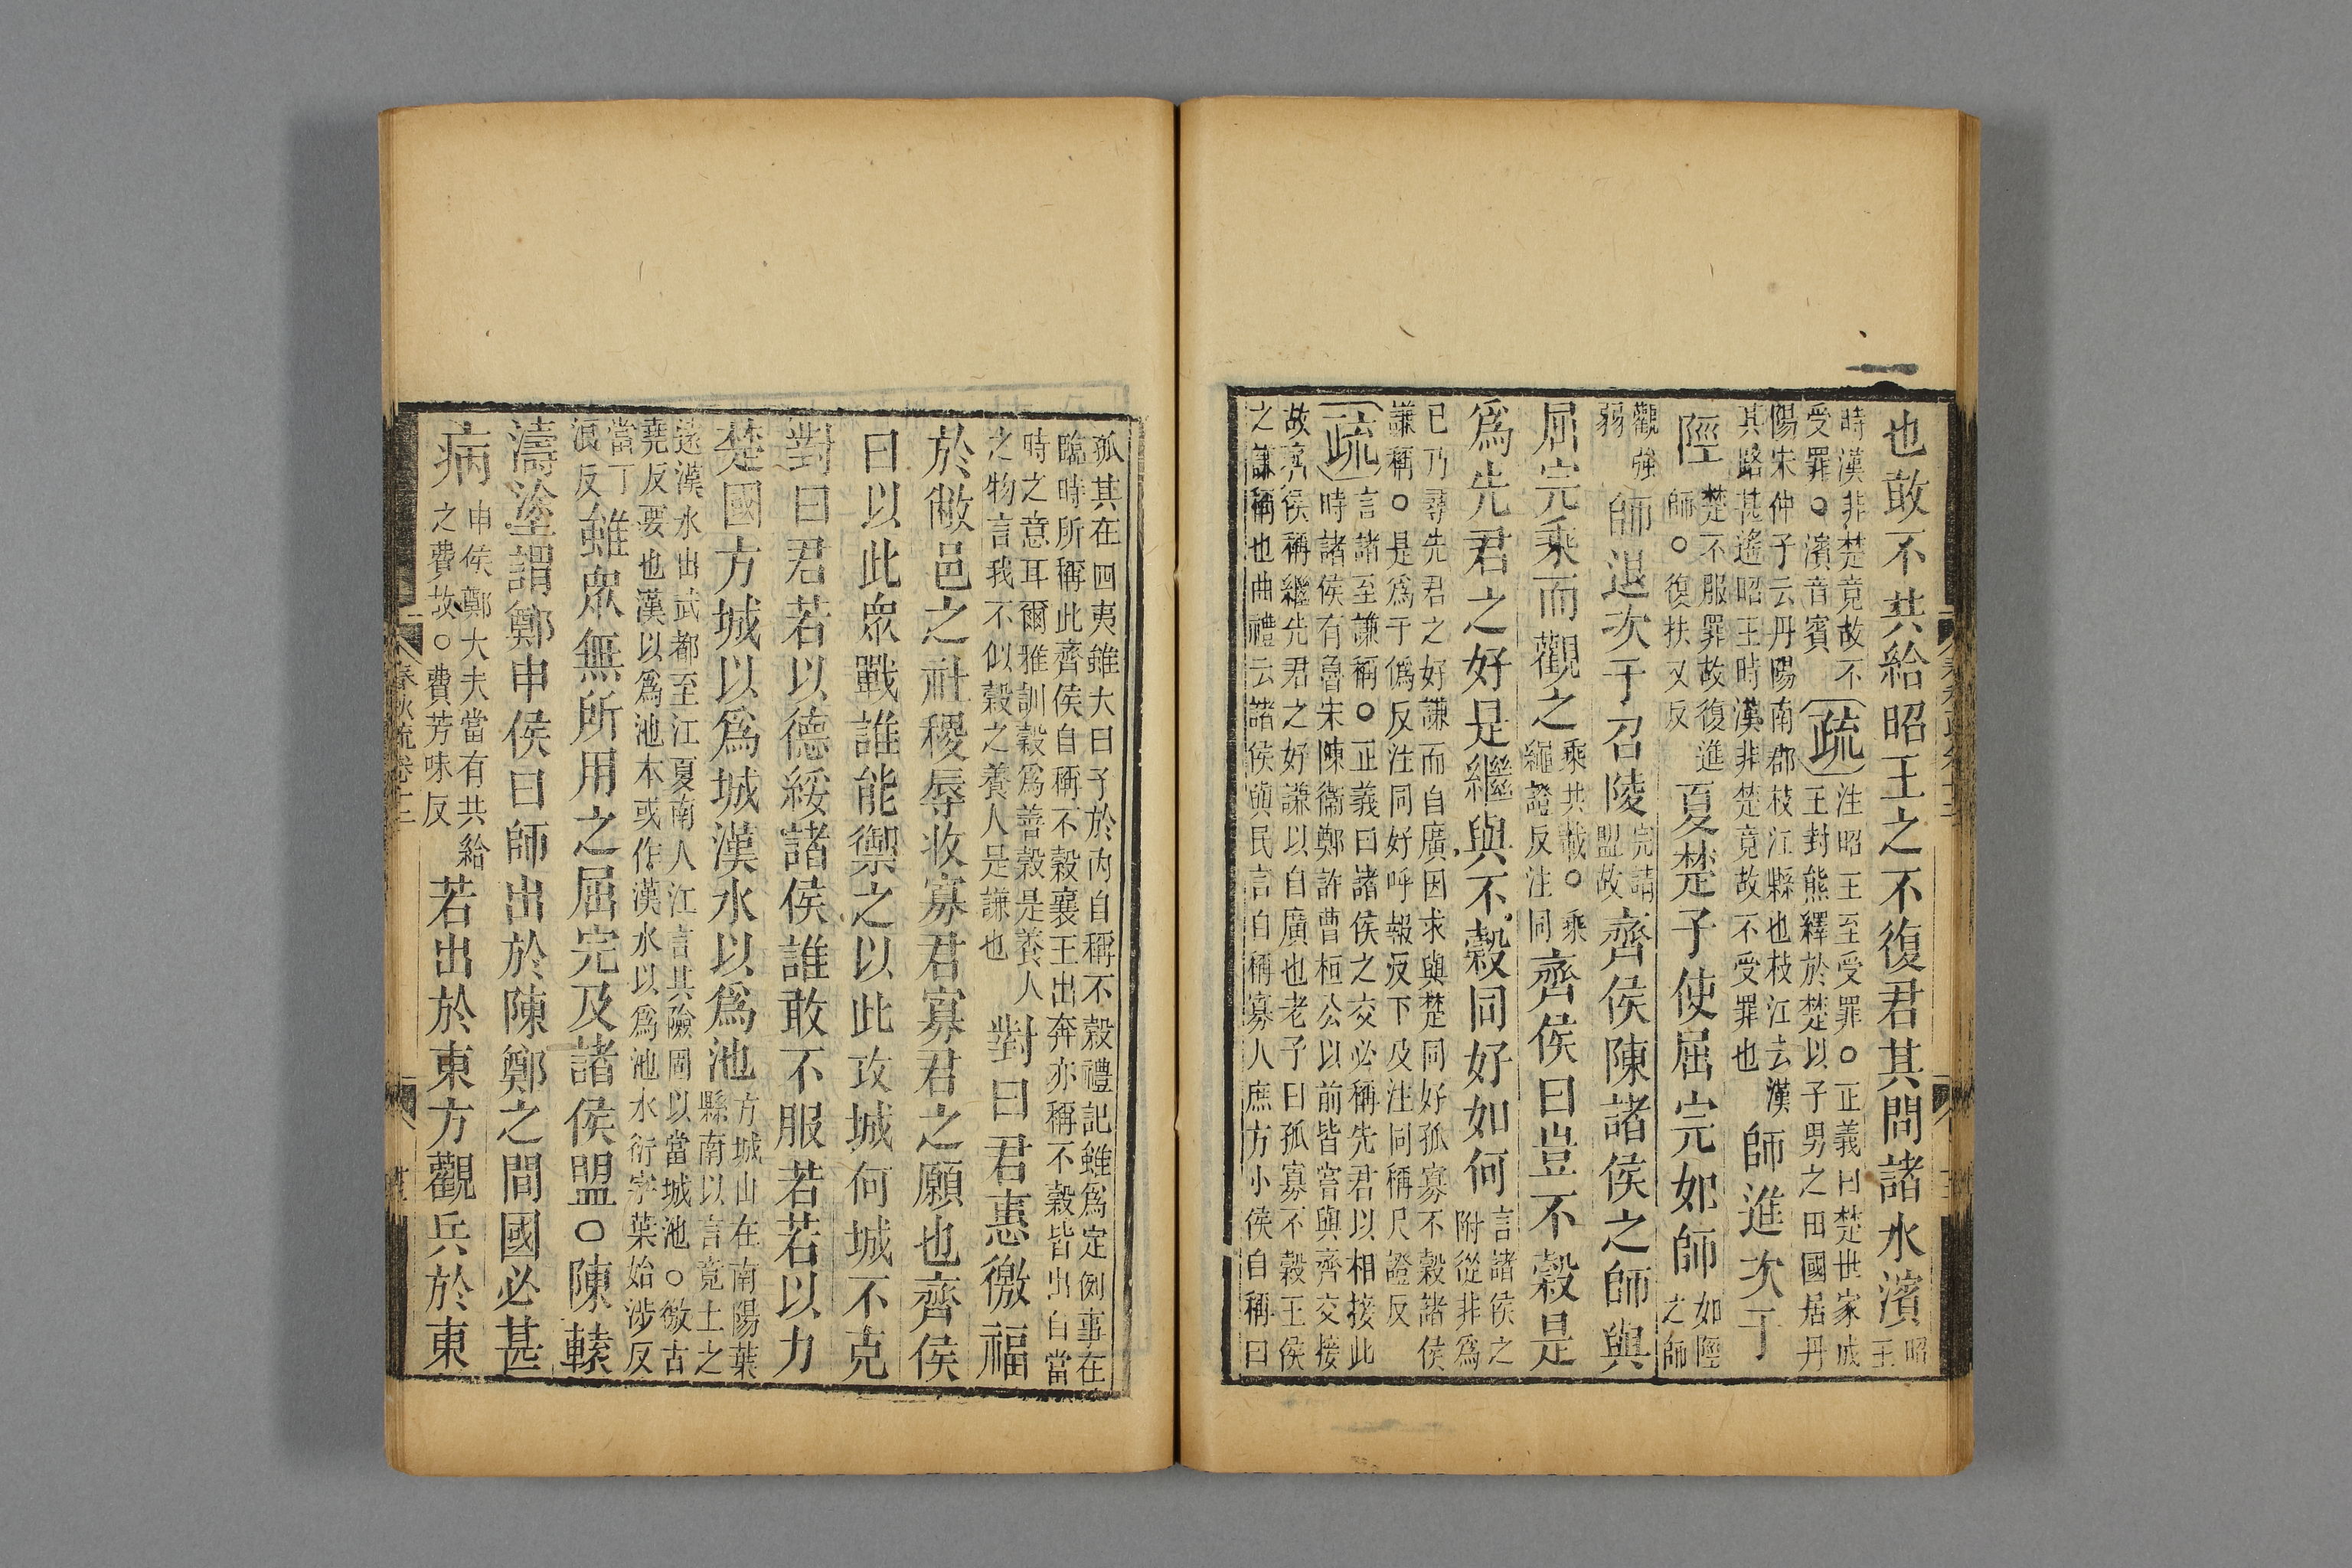 也敢不共給昭王之不復君其問諸水濱昭王
時漢非楚竟故不受罪○濱音賓疏注昭王至受罪○正義曰楚世家成王封熊繹於楚以子男之田國居丹
陽宋仲子云丹陽南郡枝江縣也枝江去漢其路甚遙昭王時漢非楚竟故不受罪也師進次于
陘楚不服罪故復進師○復扶又反夏楚子使屈完如師如陘之師
觀強弱師退次于召陵完請盟故齊侯陳諸侯之師與
屈完乘而觀之乘共載○乘繩證反注同齊侯曰豈不穀是
爲先君之好是繼與不穀同好如何言諸侯之附從非爲
已乃尋先君之好謙而自廣因求與楚同好孤寡不穀諸侯謙稱○是爲于僞反注同好呼報反下及注同稱尺證反
疏言諸至謙稱○正義曰諸侯之交必稱先君以相接此時諸侯有魯宋陳衞鄭許曹桓公以前皆嘗與齊交接
故言諸侯稱繼先君之好謙以自廣也老子曰孤寡不穀王侯之謙稱也曲禮云諸侯與民言自稱寡人庶方小侯自稱曰
孤其在四夷雖大曰子於內自稱不穀禮記雖爲定例事在臨時所稱此齊侯自稱不穀襄王出奔亦稱不穀皆出自當
時之意耳爾雅訓穀爲善穀是養人之物言我不似穀之養人是謙也對曰君惠徼福
於敝邑之社稷辱收寡君寡君之願也齊侯
曰以此衆戰誰能禦之以此攻城何城不克
對曰君若以德綏諸侯誰敢不服君若以力
楚國方城以爲城漢水以爲池方城山在南陽葉縣南以言竟土之
遠漢水出武都至江夏南入江言其險固以當城池○徼古堯反要也漢以爲池本或作漢水以爲池水衍字葉始涉反
當丁浪反雖衆無所用之屈完及諸侯盟○陳轅
濤塗謂鄭申侯曰師出於陳鄭之間國必甚
病申侯鄭大夫當有共給之費故○費芳味反若出於東方觀兵於東
春秋疏卷十二